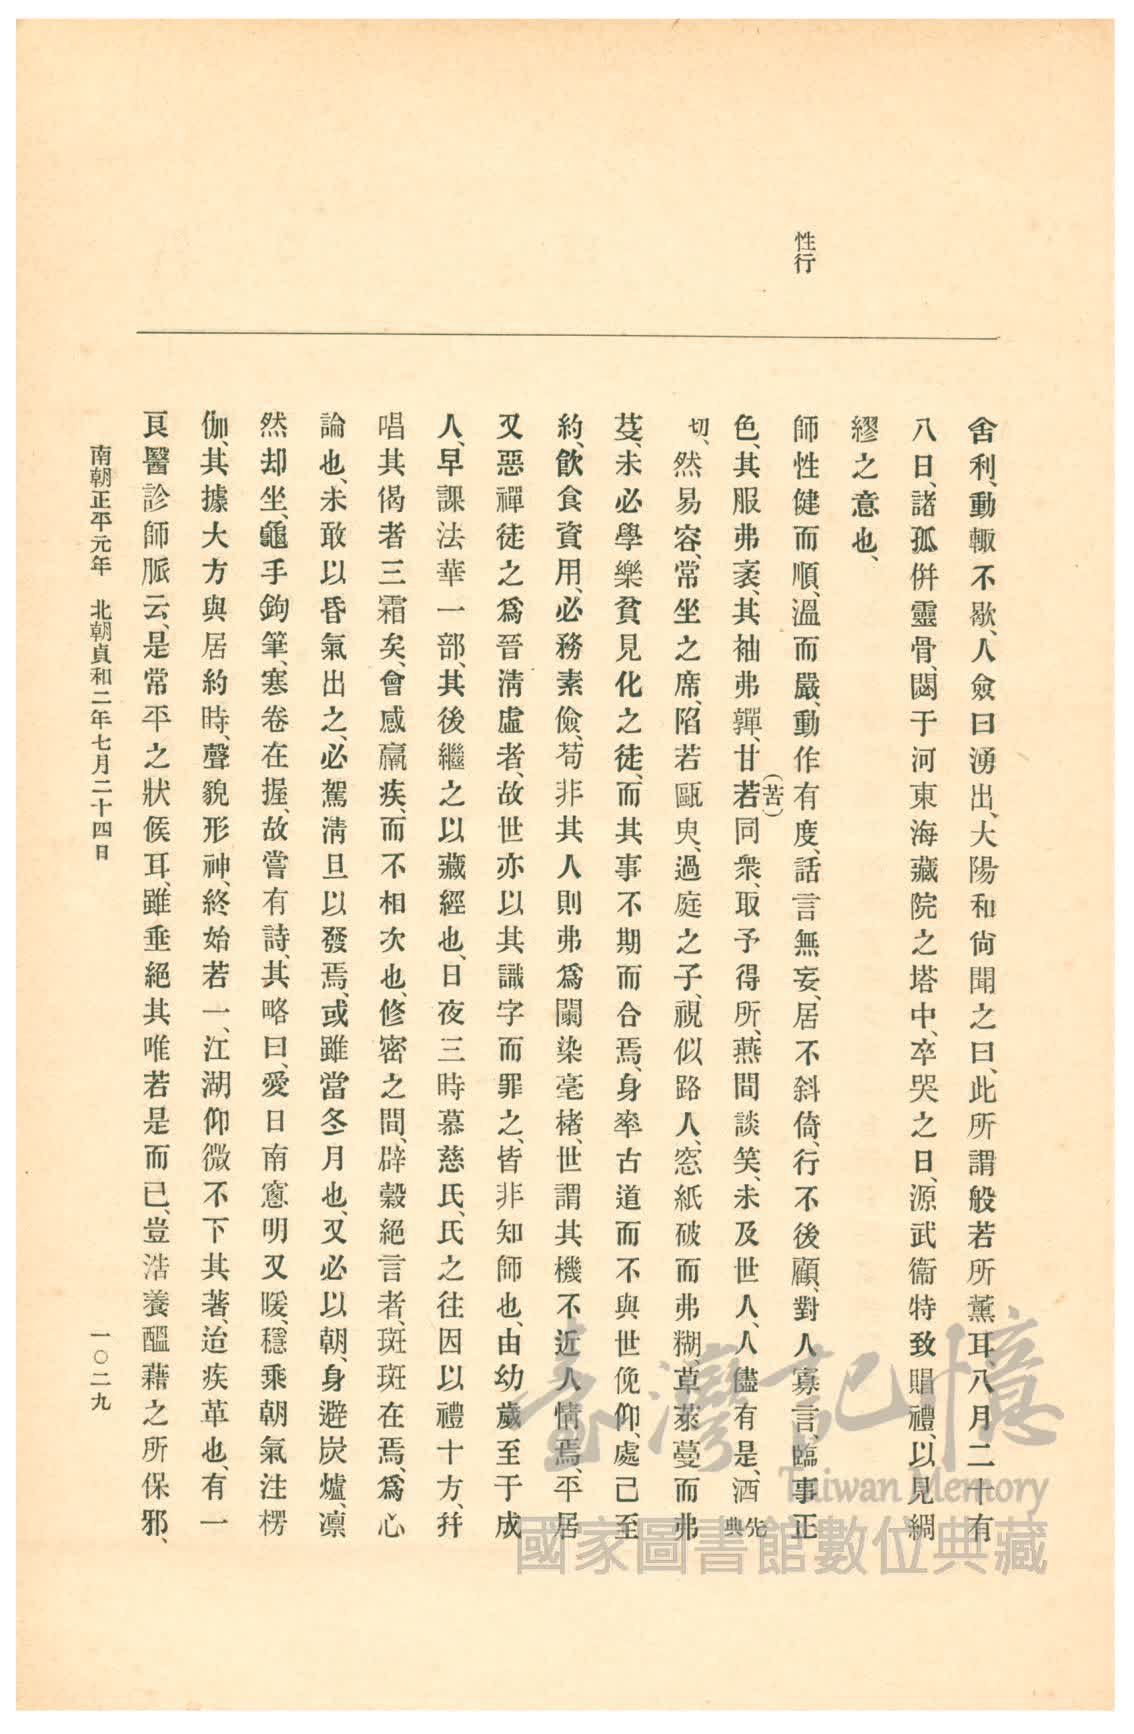 性行
舍利、動輙不歇、人僉曰湧出、大陽和尙聞之曰、此所謂般若所薰耳、八月二十有
八日、諸孤倂靈骨、閟于河東海藏院之塔中、卒哭之日、源武衞特致賵禮、以見綢
繆之意也、
師性健而順、溫而嚴、動作有度、話言無妄、居不斜倚、行不後顧、對人寡言、臨事正
色、其服弗袤、其袖弗嚲、甘若(苦)同衆、取予得所、燕間談笑、未及世人、人儘有是、洒先典
切、然易容、常坐之席、陷若甌臾、過庭之子、視似路人、窓紙破而弗糊、草萊蔓而弗
芟、未必學樂貧見化之徒、而其事不期而合焉、身率古道而不與世俛仰、處己至
約、飮食資用、必務素儉、苟非其人則弗爲闌染毫楮、世謂其機不近人情焉、平居
又惡禪徒之爲晉淸虛者、故世亦以其識字而罪之、皆非知師也、由幼歲至于成
人、早課法華一部、其後繼之以藏經也、日夜三時慕慈氏、氏之往因以禮十方、幷
唱其偈者三霜矣、會感羸疾、而不相次也、修密之間、辟穀絕言者、斑斑在焉、爲心
論也、未敢以昏氣出之、必駕淸旦以發焉、或雖當冬月也、又必以朝、身避炭爐、凛
然却坐、龜手鉤筆、寒卷在握、故嘗有詩、其略曰、愛日南窻明又暖、穩乘朝氣注楞
伽、其據大方與居約時、聲貌形神、終始若一、江湖仰微不下其著、迨疾革也、有一
良醫診師脈云、是常平之狀候耳、雖垂絕其唯若是而已、豈浩養醞藉之所保邪、
南朝正平元年　北朝貞和二年七月二十四日
一〇二九
臺灣記憶
Taiwan Memory
國家圖書館數位典藏